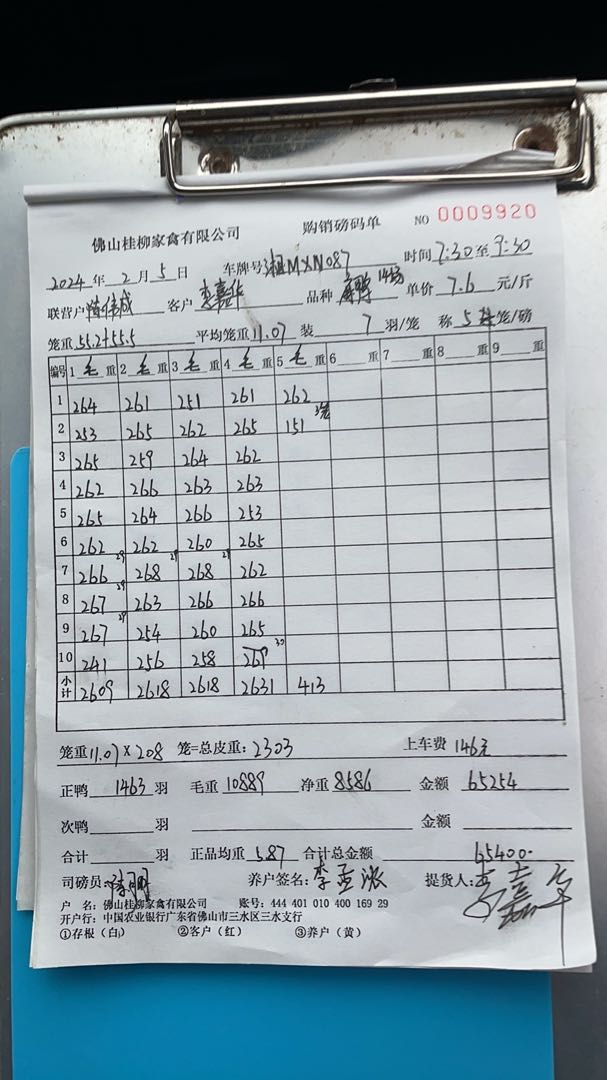 佛山桂柳家禽有限公司 购销磅码单 NO 0009920
2024年2月5日 车牌号湘MXN087 时间7:30至9:30
联营户 客户李嘉华 品种 单价7.6元/斤
笼重55.2+55.5 平均笼重11.07 装7羽/笼 称5笼/磅
编号 1毛重 2毛重 3毛重 4毛重 5毛重 6重 7重 8重 9重
1 264 261 251 261 262
2 253 265 262 265 151 3笼
3 265 259 264 262
4 262 266 263 263
5 265 264 266 253
6 262 262 260 265
7 266 29 268 29 268 29 262
8 267 29 263 266 266
9 267 29 254 260 265
10 241 256 258 269 30
小计 2609 2618 2618 2631 413
笼重11.07×208 笼=总皮重:2303 上车费146元
正鸭1463羽 毛重10889 净重8586 金额65254
次鸭羽 金额
合计羽 正品均重5.87 合计总金额65400
司磅员: 养户签名:李孟浓 提货人:李嘉华
户 名: 佛山桂柳家禽有限公司 账号: 444 401 010 400 169 29
开户行: 中国农业银行广东省佛山市三水区三水支行
①存根（白） ②客户（红） ③养户（黄）